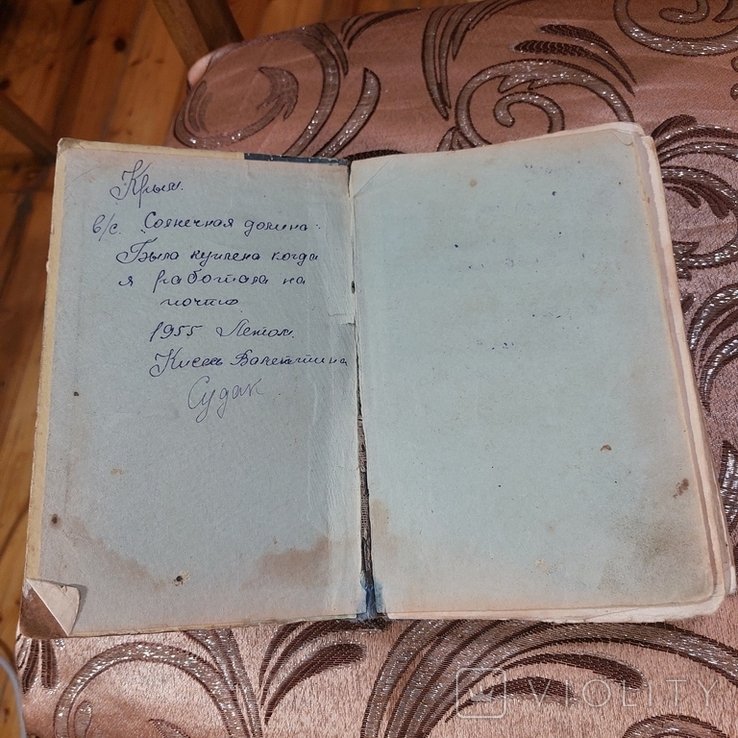 Крым.
в/с. "Солнечная долина".
Была куплена когда
я работала на
почте
1955 Летом.
Кисель Валентина
Судак
VIOLITY